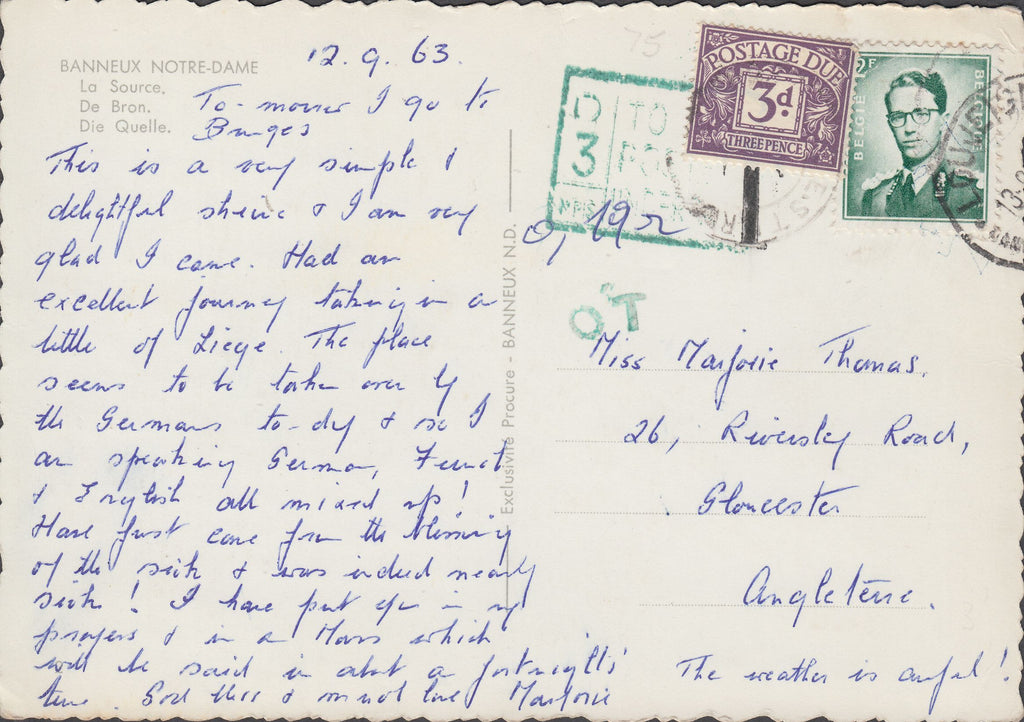 12. 9. 63.
BANNEUX NOTRE-DAME
La Source.
De Bron.
Die Quelle.
To-morrow I go to
Bruges
This is a very simple &
delightful shrine & I am very
glad I came. Had an
excellent journey taking in a
little of Liege. The place
seems to be taken over by
the Germans to-day & so I
am speaking German, French
& English all mixed up!
Have just come from the blessing
of the sick & was indeed nearly
sick! I have put you in my
prayers & in a Mass which
will be said in about a fortnight's
time. God bless & much love Marjorie
The weather is awful!
Exclusivité Procure - BANNEUX N.D.
75
D
3
TO
POSTAGE DUE
3d.
THREEPENCE
2F
BELGIE
BELGIQUE
13-9
T
O, 19
"T
Miss Marjorie Thomas.
26, Riversley Road,
Gloucester
Angleterre.